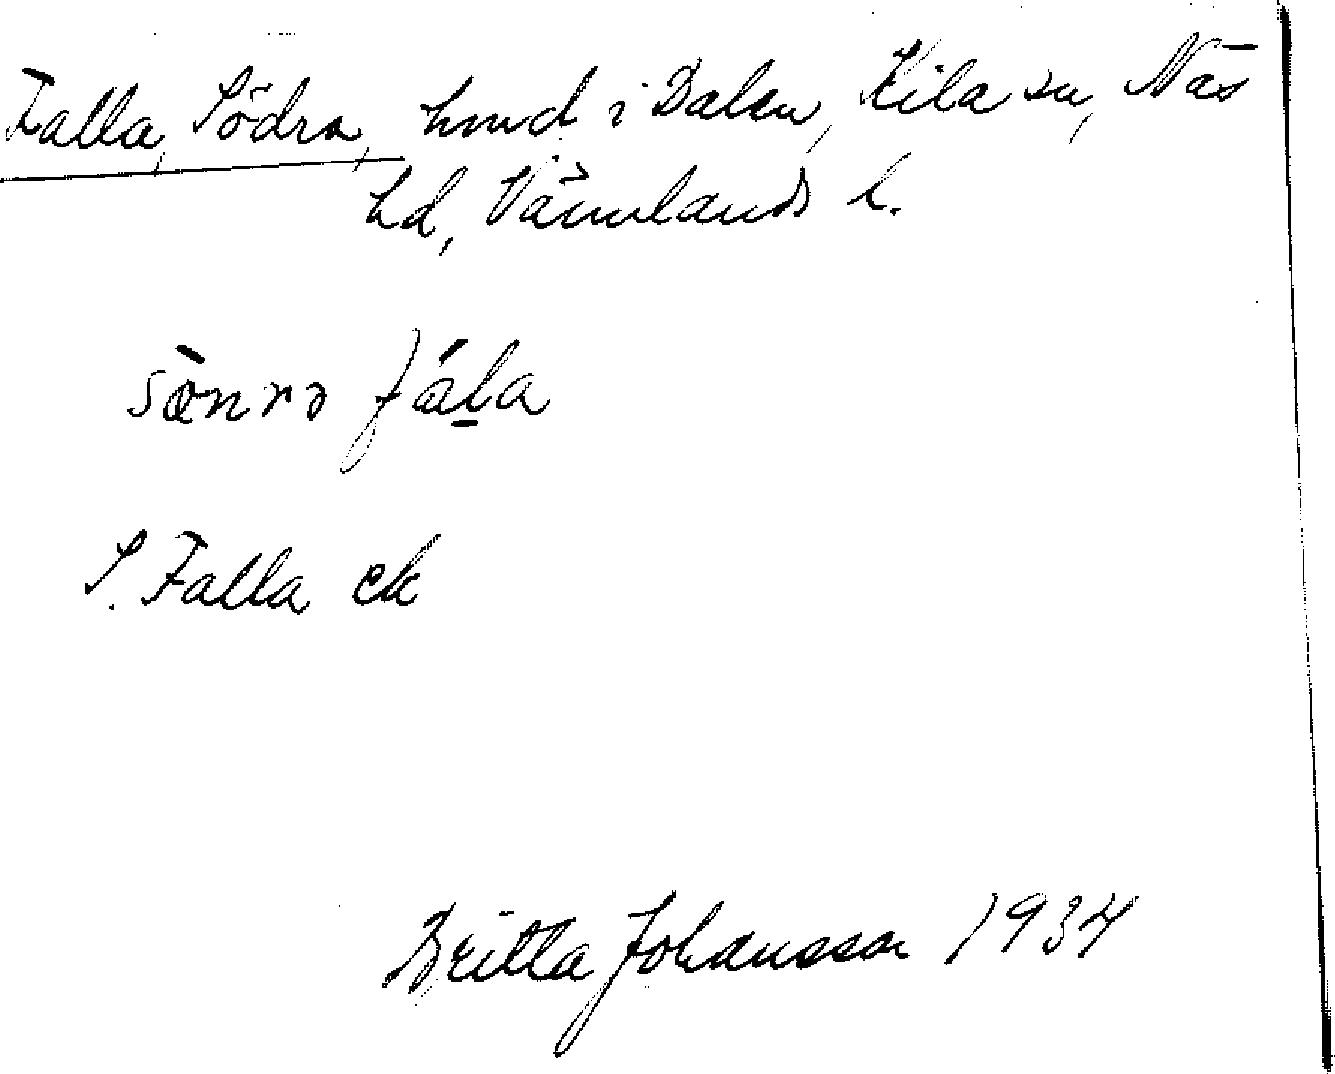 Falla, Södra, hmd i Dalen, Kila sn, Näs
hd, Värmlands l.
sæ̀nrə fála
S. Falla ek
Britta Johansson 1934